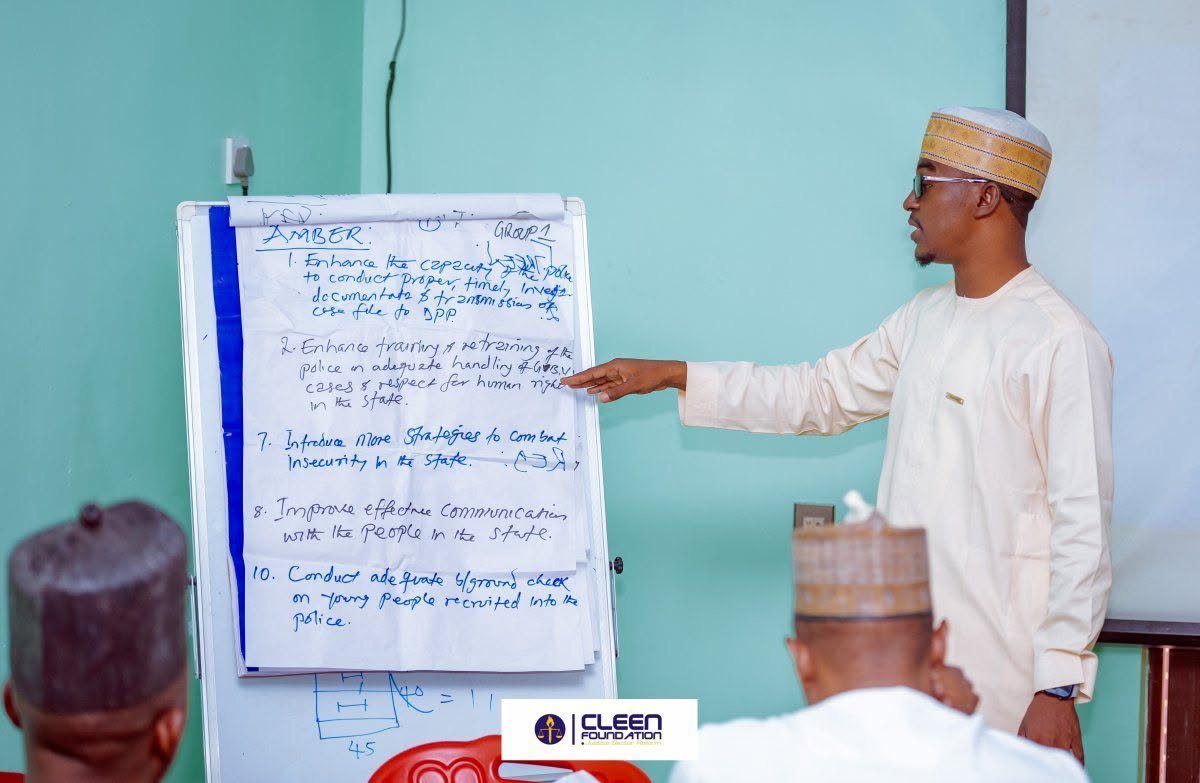 AMBER.
GROUP 1
1. Enhance the capacity of the police
to conduct proper, timely, investi-
documentatn & transmission of
case file to DPP.
2. Enhance training & retraining of the
police on adequate handling of G.B.V
cases & respect for human right
in the state.
7. Introduce more strategies to combat
insecurity in the state.
8. Improve effective communication
with the people in the state.
10. Conduct adequate b/ground check
on young people recruited into the
police.
= 11
45
CLEEN
FOUNDATION
Justice Sector Reform